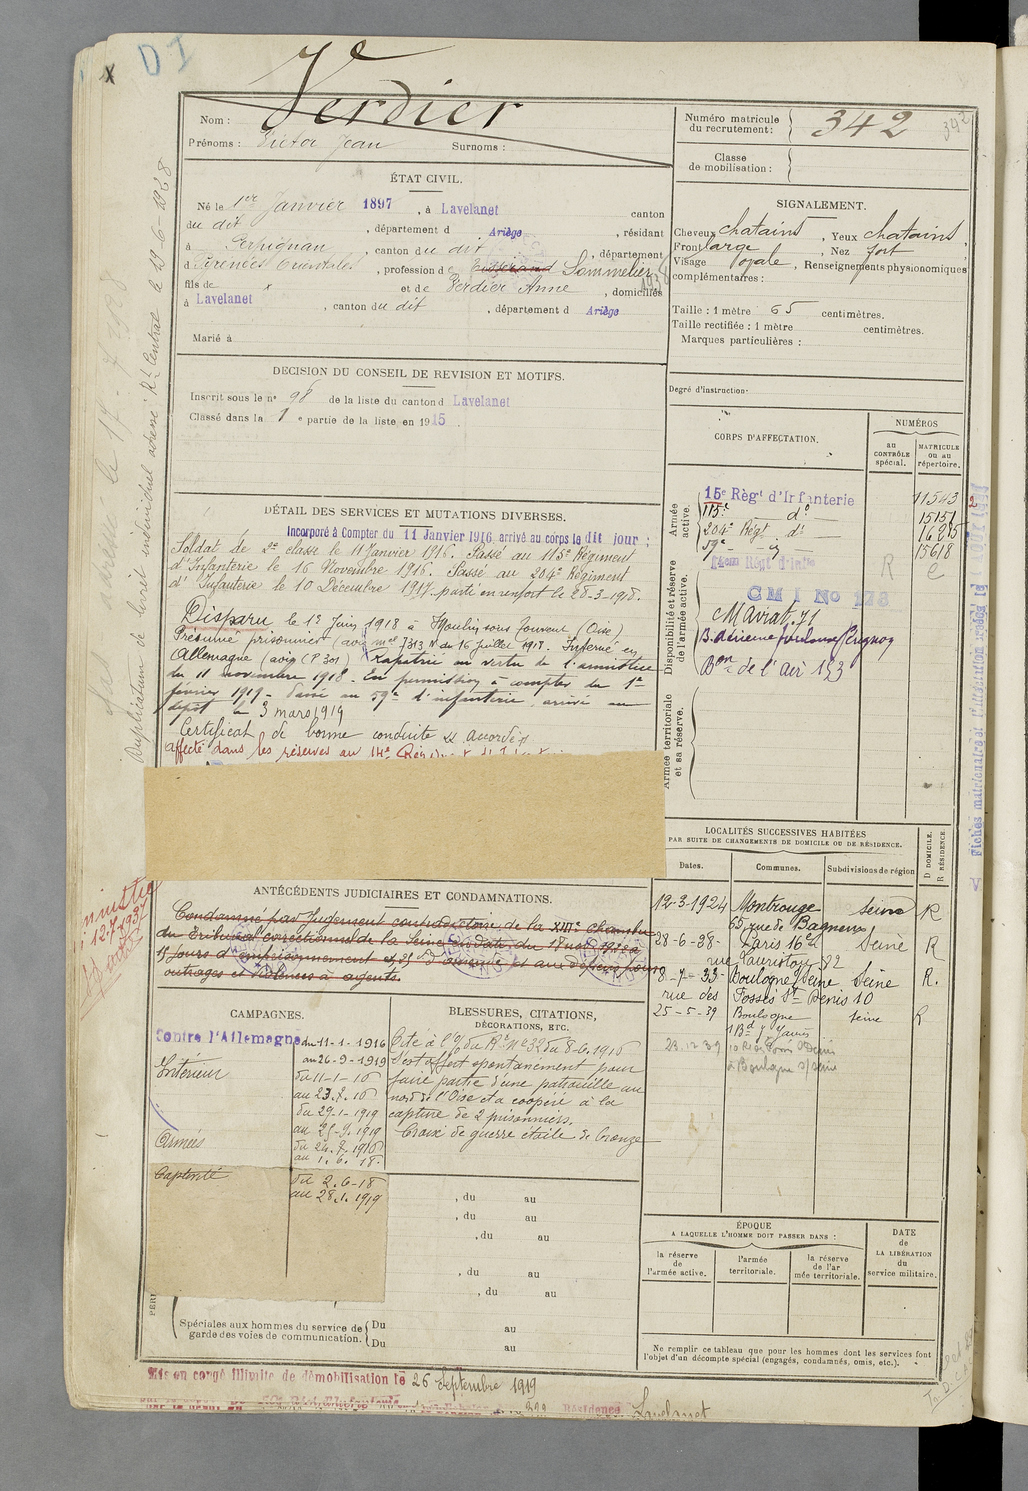 D I
x
Nom : Verdier
Prénoms : Victor Jean Surnoms :
Numéro matricule du recrutement : 342
342
Classe de mobilisation :
ÉTAT CIVIL.
Né le 1er Janvier 1897, à Lavelanet canton
du dit, département d Ariège, résidant
à Perpignan, canton du dit, département
d Pyrénées Orientales, profession de Tisserand Sommelier
1938
fils de x et de Verdier Anne, domiciliés
à Lavelanet, canton du dit, département d Ariège
Marié à
SIGNALEMENT.
Cheveux chatains, Yeux chatains,
Front large, Nez fort
Visage ovale, Renseignements physionomiques
complémentaires :
Taille : 1 mètre 65 centimètres.
Taille rectifiée : 1 mètre centimètres.
Marques particulières :
Degré d'instruction·
DECISION DU CONSEIL DE REVISION ET MOTIFS.
Inscrit sous le n° 98 de la liste du canton d Lavelanet
Classé dans la 1 e partie de la liste en 1915
DÉTAIL DES SERVICES ET MUTATIONS DIVERSES.
Incorporé à Compter du 11 Janvier 1916, arrivé au corps le dit jour ;
Soldat de 2e classe le 11 Janvier 1916. Passé au 115e Régiment
d'Infanterie le 16 Novembre 1916. Passé au 204e Régiment
d'Infanterie le 10 Décembre 1917. parti en renfort le 28-3-1918.
Disparu le 1er Juin 1918 à Moulin sous Touvent (Oise)
Présumé prisonnier (avis mel 7313 N du 16 juillet 1918. Interné en
Allemagne (avis CP 301) Rapatrié en vertu de l'armistice
du 11 novembre 1918. En permission à compter du 1er
février 1919. Passé au 59e d'infanterie, arrivé au
dépôt le 3 mars 1919
Certificat de bonne conduite accordé
affecté dans les réserves au 14e
CORPS D'AFFECTATION.
NUMÉROS
au CONTRÔLE spécial.
MATRICULE ou au répertoire.
Armée active.
15e Régt d'Infanterie 11543
115e do 15151
204e Régt do 16285
59e 15618
14eme Régt d'Infie R C
Disponibilité et réserve de l'armée active.
CMI No 178
Bon de l'air 153
Armée territoriale et sa réserve.
LOCALITÉS SUCCESSIVES HABITÉES
PAR SUITE DE CHANGEMENTS DE DOMICILE OU DE RÉSIDENCE.
D DOMICILE.
R RÉSIDENCE.
Dates. Communes. Subdivisions de région
12-3-1924 Montrouge Seine R
65, rue de Bagneux
28-6-38- Paris 16e Seine R
rue Lauriston 82
8-7-33- Boulogne/Seine Seine R.
rue des Fossés St Denis 10
25-5-39 Boulogne Seine R
1 Bd J. Jaurès
23.12.39
à Boulogne s/Seine
ANTÉCÉDENTS JUDICIAIRES ET CONDAMNATIONS.
Condamné par Jugement contradictoire de la XIIIe chambre
du Tribunal correctionnel de la Seine en date du
15 jours d'emprisonnement et 25 d'amende et aux dépens pour
outrages et violences à agents.
CAMPAGNES.
Contre l'Allemagne du 11-1-1916
au 26-9-1919
Intérieur du 11-1-16
au 23.7.16
du 29-1-1919
au 25-9-1919
Armées du 24.7.1916
au 1.6.18.
Captivité du 2.6-18
au 28.1.1919
BLESSURES, CITATIONS,
DÉCORATIONS, ETC.
Cité à l'O/ du Rt No 32 du 8-6.1918
S'est offert spontanément pour
faire partie d'une patrouille au
nord de l'Oise et a coopéré à la
capture de 2 prisonniers.
Croix de guerre étoile de bronze
, du au
, du au
, du au
, du au
, du au
Spéciales aux hommes du service de garde des voies de communication.
Du au
Du au
ÉPOQUE
A LAQUELLE L'HOMME DOIT PASSER DANS :
la réserve de l'armée active.
l'armée territoriale.
la réserve de l'ar mée territoriale.
DATE de LA LIBÉRATION du service militaire.
Ne remplir ce tableau que pour les hommes dont les services font
l'objet d'un décompte spécial (engagés, condamnés, omis, etc.).
Mis en congé illimité de démobilisation le 26 Septembre 1919
Résidence Lavelanet
Duplicatum de livret individuel adressé Rt Central le 19-6-1938
le 17-7-1938
12-7-1937